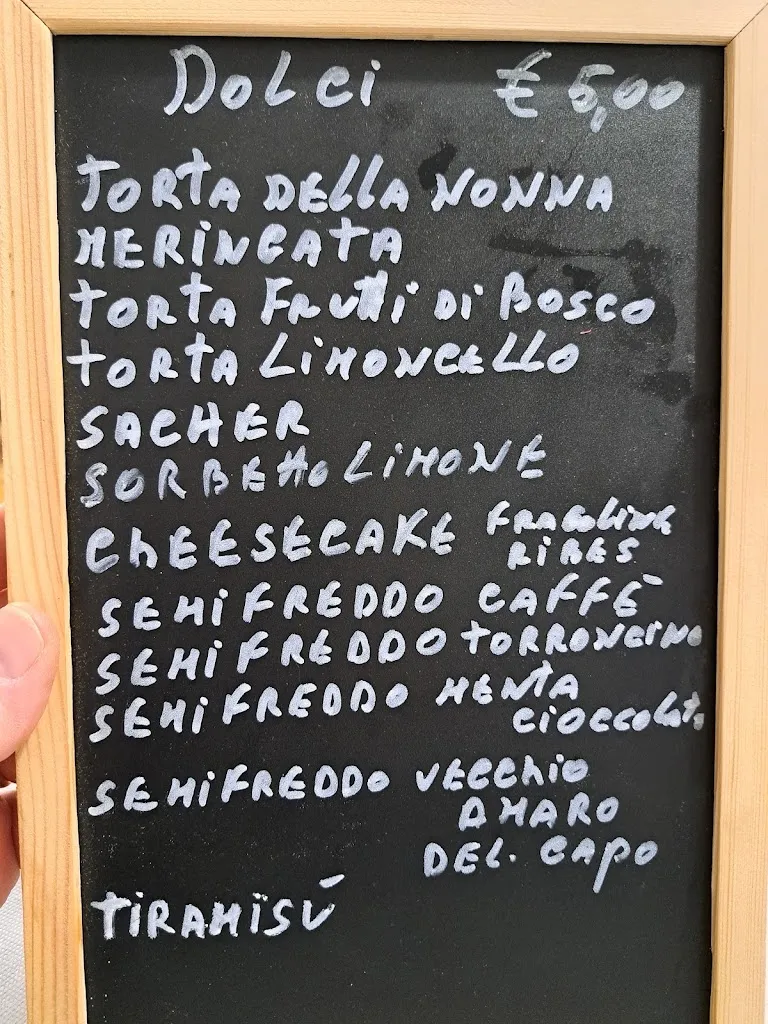 Dolci € 5,00
TORTA DELLA NONNA
MERINGATA
TORTA FRUTTI DI BOSCO
TORTA LIMONCELLO
SACHER
SORBETTO LIMONE
CHEESECAKE FRAGOLINE
RIBES
SEMIFREDDO CAFFÈ
SEMIFREDDO TORRONCINO
SEMIFREDDO MENTA
CIOCCOLATO
SEMIFREDDO VECCHIO
AMARO
DEL. CAPO
TIRAMISÙ